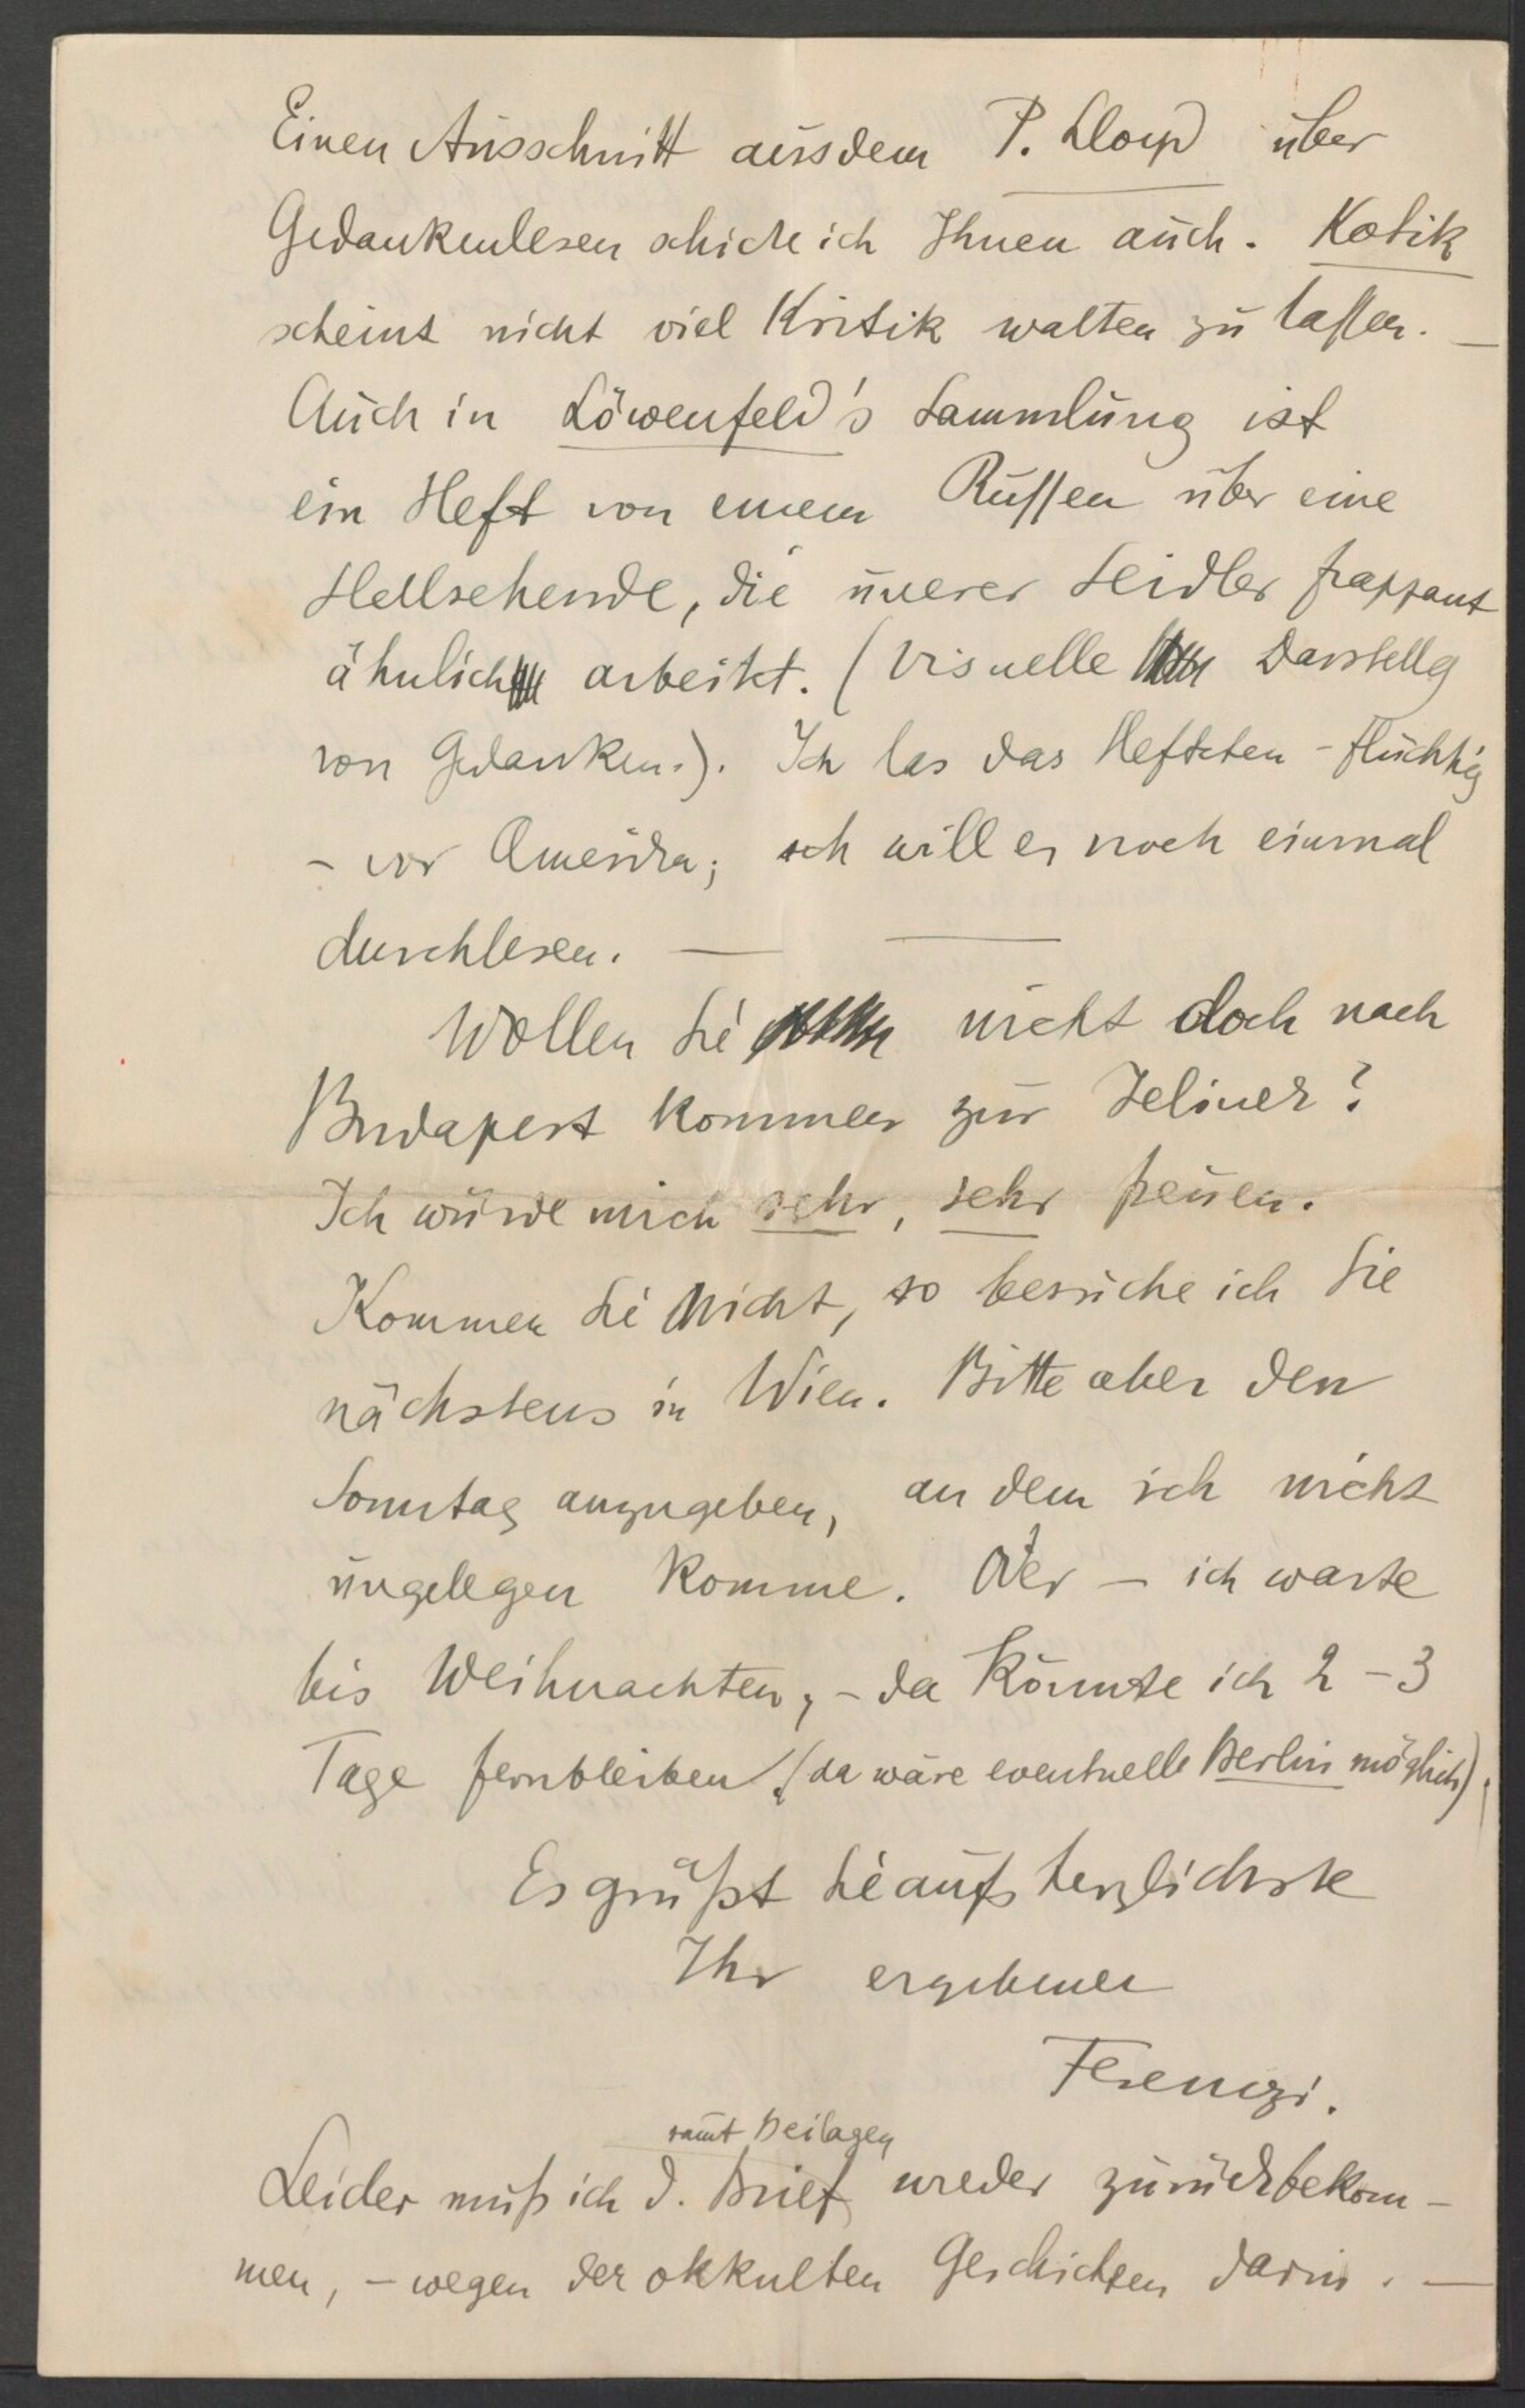 Einen Ausschnitt aus dem P. Lloyd über
Gedankenlesen schicke ich Ihnen auch. Kotik
scheint nicht viel Kritik walten zu lassen. —
Auch in Löwenfeld's Sammlung ist
ein Heft von einem Russen über eine
Hellsehende, die unserer Seidler frappant
ähnlich arbeitet. (Visuelle Darstellg
von Gedanken.). Ich las das Heftchen – flüchtig
– vor Amerika; ich will es noch einmal
durchlesen. — —
Wollen Sie nicht doch nach
Budapest kommen zur Jelinek?
Ich würde mich sehr, sehr freuen.
Kommen Sie nicht, so besuche ich Sie
nächstens in Wien. Bitte aber den
Sonntag anzugeben, an dem ich nicht
ungelegen komme. Oder – ich warte
bis Weihnachten, – da könnte ich 2–3
Tage fernbleiben! (da wäre eventuelle Berlin möglich).
Es grüßt Sie aufs herzlichste
Ihr ergebener
Ferenczi.
samt Beilagen
Leider muß ich d. Brief wieder zurückbekom-
men, – wegen der okkulten Geschichten darin. —